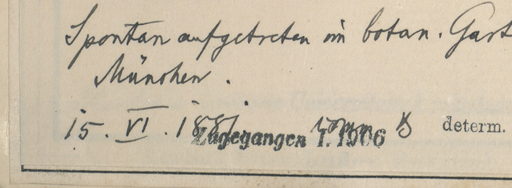 Spontan aufgetreten im botan. Gart
München.
15. VI. 188
Zugegangen 1. 1906
determ.